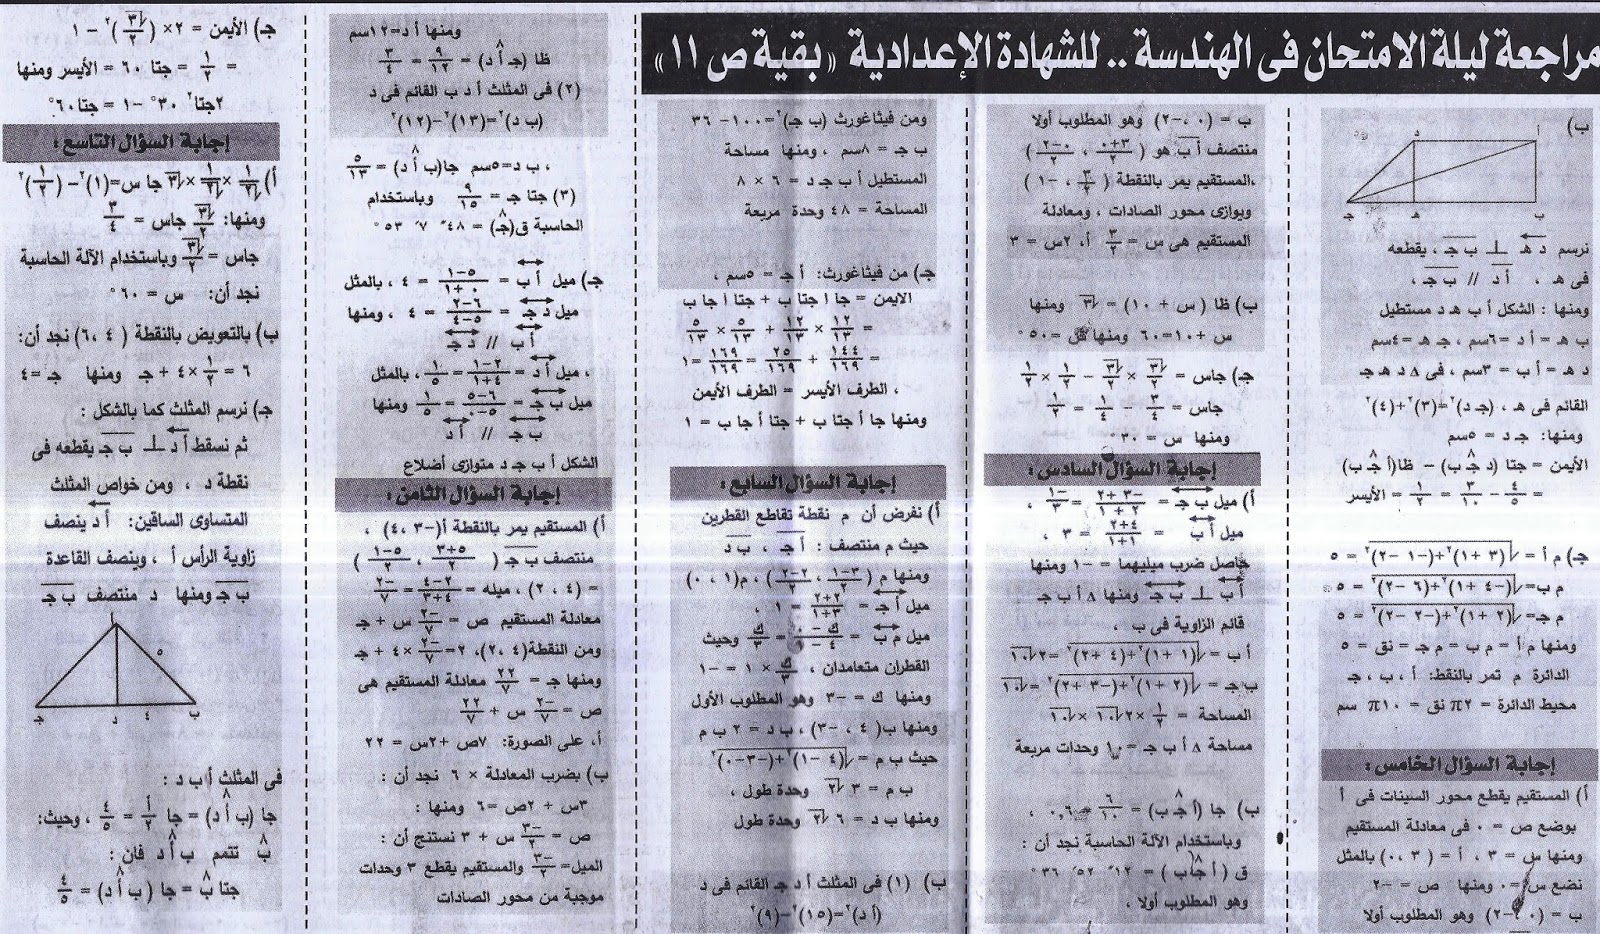 مراجعة ليلة الامتحان فى الهندسة .. للشهادة الإعدادية « بقية ص ١١ »
ب)
أ
د
جـ
هـ
ب
نرسم د هـ ⊥ ب جـ ، يقطعه
فى هـ ، أ د // ب جـ ،
ومنها : الشكل أ ب هـ د مستطيل
ب هـ = أ د =٦سم ، جـ هـ =٤سم
د هـ = أ ب = ٣سم ، فى Δ د هـ جـ
القائم فى هـ ، (جـ د)²=(٣)²+(٤)²
ومنها: جـ د = ٥سم
الأيمن = جتا (د جـ ب) – ظا(أ جـ ب)
= ٤/٥ – ٣/١٠ = ١/٢ = الأيسر
جـ) م أ = √((٣ +١)²+(–١ –٢)²) = ٥
م ب= √((–٤ +١)²+(٦ –٢)²) = ٥
م جـ= √((٢ +١)²+(–٢ –٢)²) = ٥
ومنها م أ = م ب = م جـ = نق = ٥
الدائرة م تمر بالنقط: أ ، ب ، جـ
محيط الدائرة = ٢π نق = ١٠π سم
إجابة السؤال الخامس:
أ) المستقيم يقطع محور السينات فى أ
بوضع ص = ٠ فى معادلة المستقيم
ومنها س = ٣ ، أ = (٣ ،٠) بالمثل
نضع س=٠ ومنها ص = –٢
ب = (٠ ،–٢) وهو المطلوب أولا
ب = (٠ ،–٢) وهو المطلوب أولا
منتصف أ ب هو (٣+٠/٢ ، ٠–٢/٢)
،المستقيم يمر بالنقطة (٣/٢ ، –١)
ويوازى محور الصادات ، ومعادلة
المستقيم هى س = ٣/٢ أ، ٢س = ٣
ب) ظا (س + ١٠) = √٣ ومنها
س +١٠=٦٠ ومنها س =٥٠°
جـ) جاس = √٣/٢ × √٣/٢ – ١/٢ × ١/٢
جاس = ٣/٤ – ١/٤ = ١/٢
ومنها س = ٣٠°
إجابة السؤال السادس:
أ) ميل ب جـ = –٣ +٢/٢ +١ = –١/٣ ،
ميل أ ب = ٤+٢/١+١ = ٣ ،
حاصل ضرب ميليهما = –١ ومنها
أ ب ⊥ ب جـ ومنها Δ أ ب جـ
قائم الزاوية فى ب ،
أ ب = √((١ +١)²+(٤ +٢)²) =٢√١٠
ب جـ = √((٢ +١)²+(–٣ +٢)²) =√١٠
المساحة = ١/٢ ×٢√١٠×√١٠
مساحة Δ أ ب جـ = ١٠ وحدات مربعة
ب) جا (أ جـ ب) = ٦/١٠ = ٠,٦ ،
وباستخدام الآلة الحاسبة نجد أن :
ق (أ جـ ب) = ١٢″ ٥٢′ ٣٦°
وهو المطلوب أولا ،
ومن فيثاغورث (ب جـ)²=١٠٠–٣٦
ب جـ = ٨سم ، ومنها مساحة
المستطيل أ ب جـ د = ٦ × ٨
المساحة = ٤٨ وحدة مربعة
جـ) من فيثاغورث: أ جـ = ٥سم ،
الايمن = جا أ جتا ب + جتا أ جا ب
= ١٢/١٣ × ١٢/١٣ + ٥/١٣ × ٥/١٣
= ١٤٤/١٦٩ + ٢٥/١٦٩ = ١٦٩/١٦٩ =١
، الطرف الأيسر = الطرف الأيمن
ومنها جا أ جتا ب + جتا أ جا ب = ١
إجابة السؤال السابع :
أ) نفرض أن م نقطة تقاطع القطرين
حيث م منتصف : أ جـ ، ب د
ومنها م (٣–١/٢ ، ٢–٢/٢) ، م(١ ، ٠)
ميل أ جـ = ٢+٢/٣+١ = ١ ،
ميل م ب = ك/٤–١ = ك/٣ وحيث
القطران متعامدان ، ك/٣ × ١ = –١
ومنها ك = –٣ وهو المطلوب الأول
ومنها ب( ٤ ، –٣) ، ب د = ٢ ب م
حيث ب م = √((٤ –١)²+(–٣–٠)²)
ب م = ٣ √٢ وحدة طول ،
ومنها ب د = ٦ √٢ وحدة طول
ب) (١) فى المثلث أ د جـ القائم فى د
(أ د)²=(١٥)²–(٩)²
ومنها أ د=١٢سم
ظا (جـ أ د) = ٩/١٢ = ٣/٤
(٢) فى المثلث أ د ب القائم فى د
(ب د)²=(١٣)²–(١٢)²
، ب د=٥سم جا(ب أ د) = ٥/١٣
(٣) جتا جـ = ٩/١٥ وباستخدام
الحاسبة ق(جـ) = ٤٨″ ٧′ ٥٣°
جـ) ميل أ ب = ٥–١/٠+١ = ٤ ، بالمثل
ميل د جـ = ٦–٢/٥–٤ = ٤ ، ومنها
أ ب // د جـ
، ميل أ د = ٢–١/٤+١ = ١/٥ ، بالمثل
ميل ب جـ = ٦–٥/٥–٠ = ١/٥ ومنها
ب جـ // أ د
الشكل أ ب جـ د متوازى أضلاع
إجابة السؤال الثامن :
أ) المستقيم يمر بالنقطة أ(–٣ ،٤) ،
منتصف ب جـ (٥+٣/٢ ، ٥–١/٢)
= (٤ ، ٢) ، ميله = ٢–٤/٤+٣ = –٢/٧
معادلة المستقيم ص = –٢/٧ س + جـ
ومن النقطة(٤ ،٢)، ٢= –٢/٧ ×٤ + جـ
ومنها جـ = ٢٢/٧ معادلة المستقيم هى
ص = –٢/٧ س + ٢٢/٧
أ، على الصورة: ٧ص +٢س = ٢٢
ب) بضرب المعادلة × ٦ نجد أن :
٣س + ٢ص =٦ ومنها :
ص = –٣/٢ س + ٣ نستنتج أن :
الميل= –٣/٢ والمستقيم يقطع ٣ وحدات
موجبة من محور الصادات
جـ) الأيمن = ٢× (√٣/٢)² – ١
= ١/٢ = جتا ٦٠ = الأيسر ومنها
٢جتا² ٣٠° –١ = جتا٦٠°
إجابة السؤال التاسع :
أ) ١/√٢ × ١/√٢ ×√٣ جا س=(١)²–(١/٢)²
ومنها: √٣/٢ جاس = ٣/٤
جاس = √٣/٢ وباستخدام الآلة الحاسبة
نجد أن: س = ٦٠°
ب) بالتعويض بالنقطة (٤ ،٦) نجد أن:
٦ = ١/٢ ×٤ + جـ ومنها جـ =٤
جـ) نرسم المثلث كما بالشكل :
ثم نسقط أ د ⊥ ب جـ يقطعه فى
نقطة د ، ومن خواص المثلث
المتساوى الساقين: أ د ينصف
زاوية الرأس أ ، وينصف القاعدة
ب جـ ومنها د منتصف ب جـ
أ
٥
جـ
د
٤
ب
فى المثلث أ ب د :
جا (ب أ د) = جا أ/٢ = ٤/٥ ، وحيث:
ب تتمم ب أ د فان :
جتا ب = جا (ب أ د) = ٤/٥